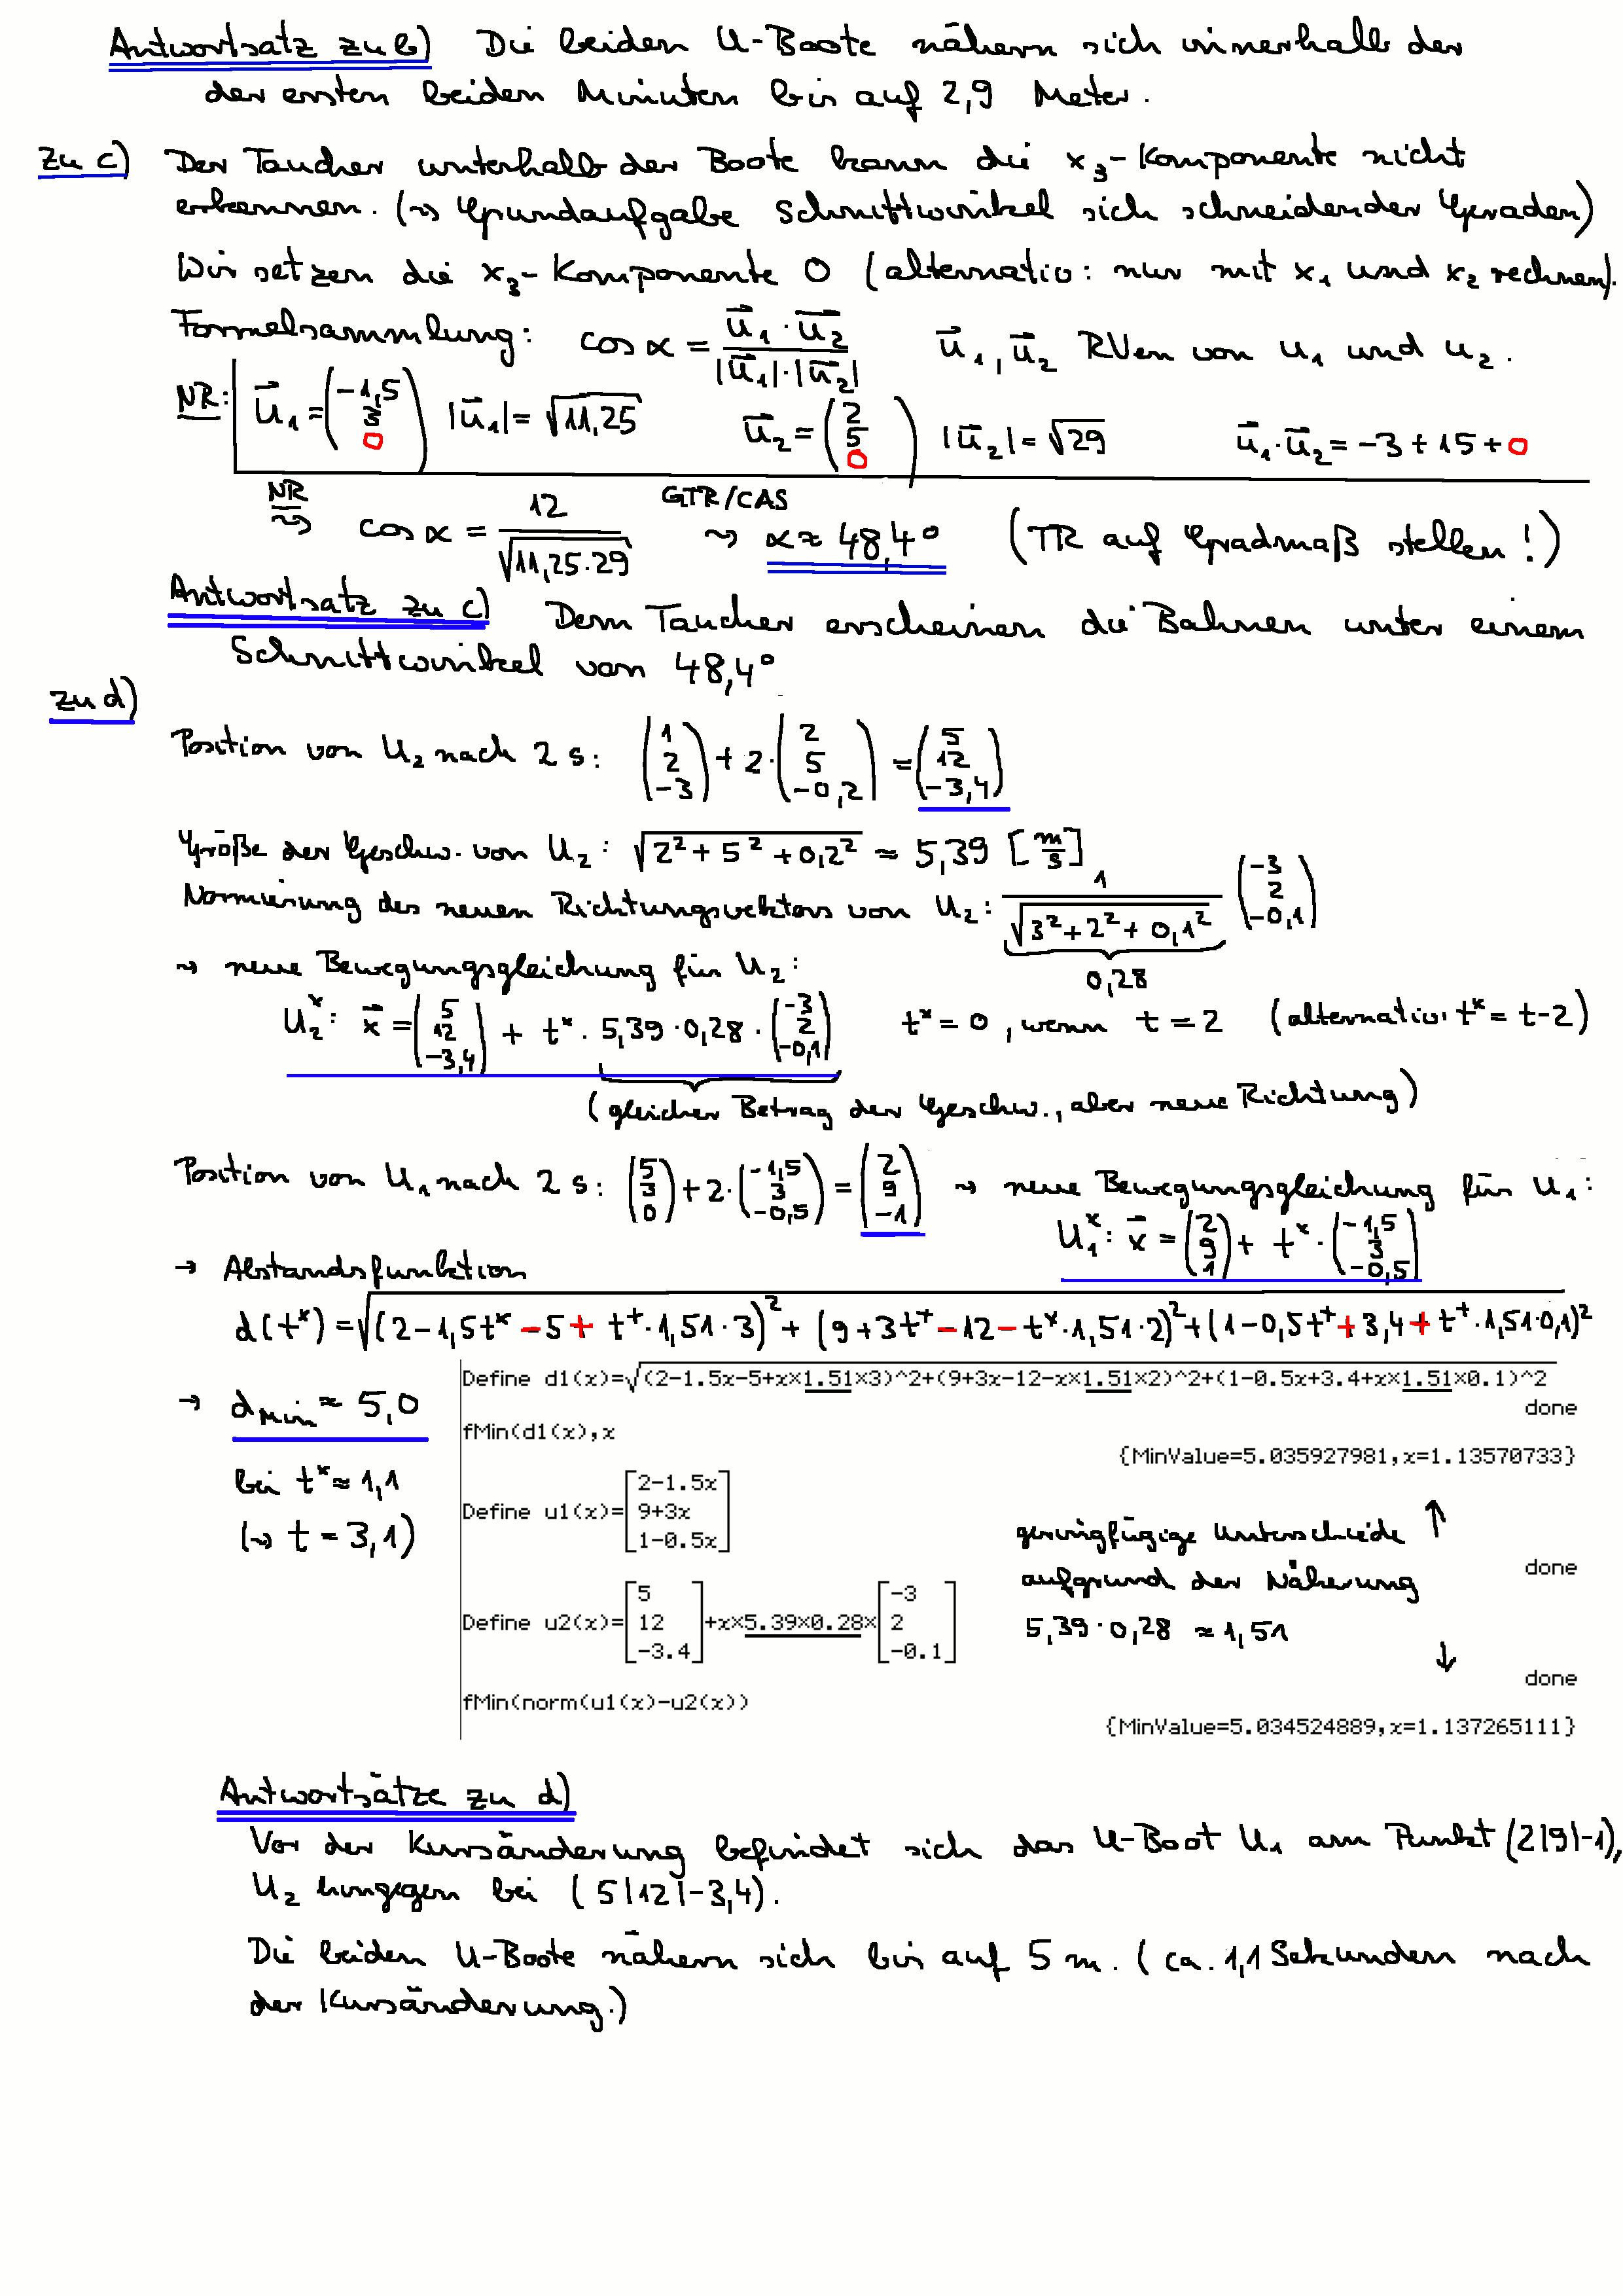 Antwortsatz zu b) Die beiden U-Boote nähern sich innerhalb der
der ersten beiden Minuten bis auf 2,9 Meter.
zu c) Der Taucher unterhalb der Boote kann die x₃-Komponente nicht
erkennen. (⇝ Grundaufgabe Schnittwinkel sich schneidender Geraden)
Wir setzen die x₃-Komponente 0 (alternativ: nur mit x₁ und x₂ rechnen).
Formelsammlung: cos α = (u⃗₁ · u⃗₂)/(|u⃗₁|·|u⃗₂|) u⃗₁, u⃗₂ RVen von U₁ und U₂.
NR: u⃗₁ = (-1,5 3 0) |u⃗₁| = √11,25 u⃗₂ = (2 5 0) |u⃗₂| = √29 u⃗₁·u⃗₂ = -3 + 15 + 0
NR ⇝ cos α = 12/√(11,25·29) GTR/CAS ⇝ α ≈ 48,4° (TR auf Gradmaß stellen!)
Antwortsatz zu c) Dem Taucher erscheinen die Bahnen unter einem
Schnittwinkel von 48,4°
zu d)
Position von U₂ nach 2 s: (1 2 -3) + 2·(2 5 -0,2) = (5 12 -3,4)
Größe der Geschw. von U₂: √(2² + 5² + 0,2²) ≈ 5,39 [m/s]
Normierung des neuen Richtungsvektors von U₂: 1/√(3² + 2² + 0,1²) (-3 2 -0,1)
0,28
→ neue Bewegungsgleichung für U₂:
U₂*: x⃗ = (5 12 -3,4) + t* · 5,39 · 0,28 · (-3 2 -0,1) t* = 0, wenn t = 2 (alternativ: t* = t-2)
(gleicher Betrag der Geschw., aber neue Richtung)
Position von U₁ nach 2 s: (5 3 0) + 2·(-1,5 3 -0,5) = (2 9 -1) → neue Bewegungsgleichung für U₁:
U₁*: x⃗ = (2 9 1) + t* · (-1,5 3 -0,5)
→ Abstandsfunktion
d(t*) = √((2-1,5t* -5 + t*·1,51·3)² + (9+3t* -12 - t*·1,51·2)² + (1-0,5t* +3,4 + t*·1,51·0,1)²
Define d1(x)=√(2-1.5x-5+x×1.51×3)^2+(9+3x-12-x×1.51×2)^2+(1-0.5x+3.4+x×1.51×0.1)^2
done
→ d_Min ≈ 5,0
fMin(d1(x),x
{MinValue=5.035927981,x=1.13570733}
bei t* ≈ 1,1
(⇝ t = 3,1)
Define u1(x)=[2-1.5x 9+3x 1-0.5x]
done
geringfügige Unterschiede ↑
aufgrund der Näherung
5,39 · 0,28 ≈ 1,51
↓
Define u2(x)=[5 12 -3.4]+x×5.39×0.28×[-3 2 -0.1]
done
fMin(norm(u1(x)-u2(x))
{MinValue=5.034524889,x=1.137265111}
Antwortsätze zu d)
Vor der Kursänderung befindet sich das U-Boot U₁ am Punkt (2|9|-1),
U₂ hingegen bei (5|12|-3,4).
Die beiden U-Boote nähern sich bis auf 5 m. (ca. 1,1 Sekunden nach
der Kursänderung.)